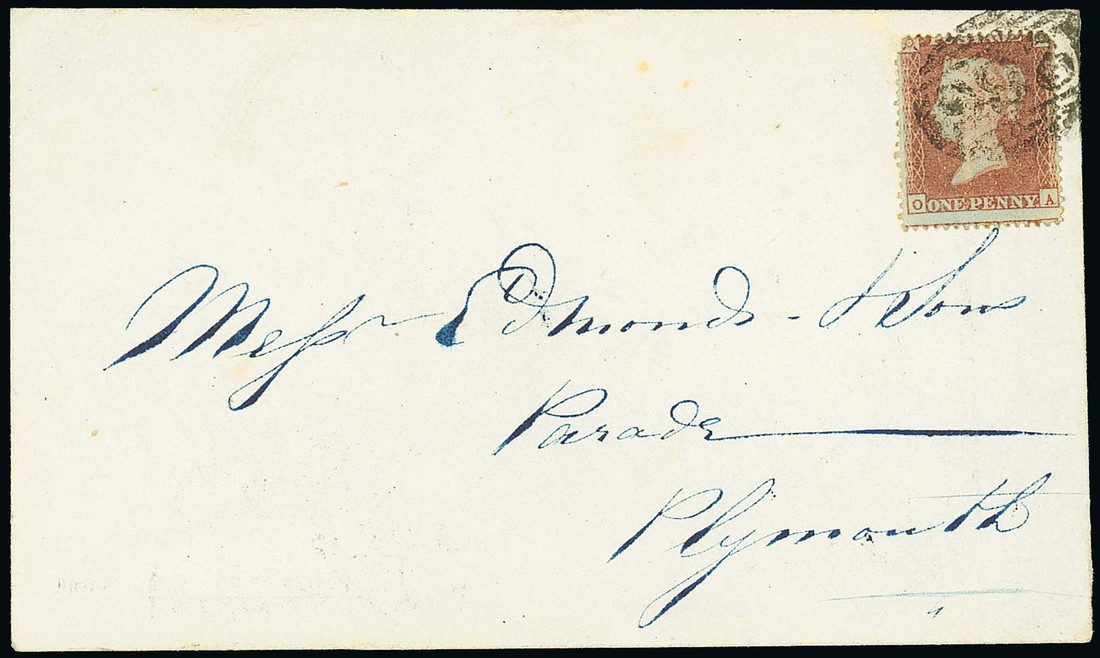 POSTAGE
O ONE PENNY A
Messrs Edmonds & Sons
Parade
Plymouth